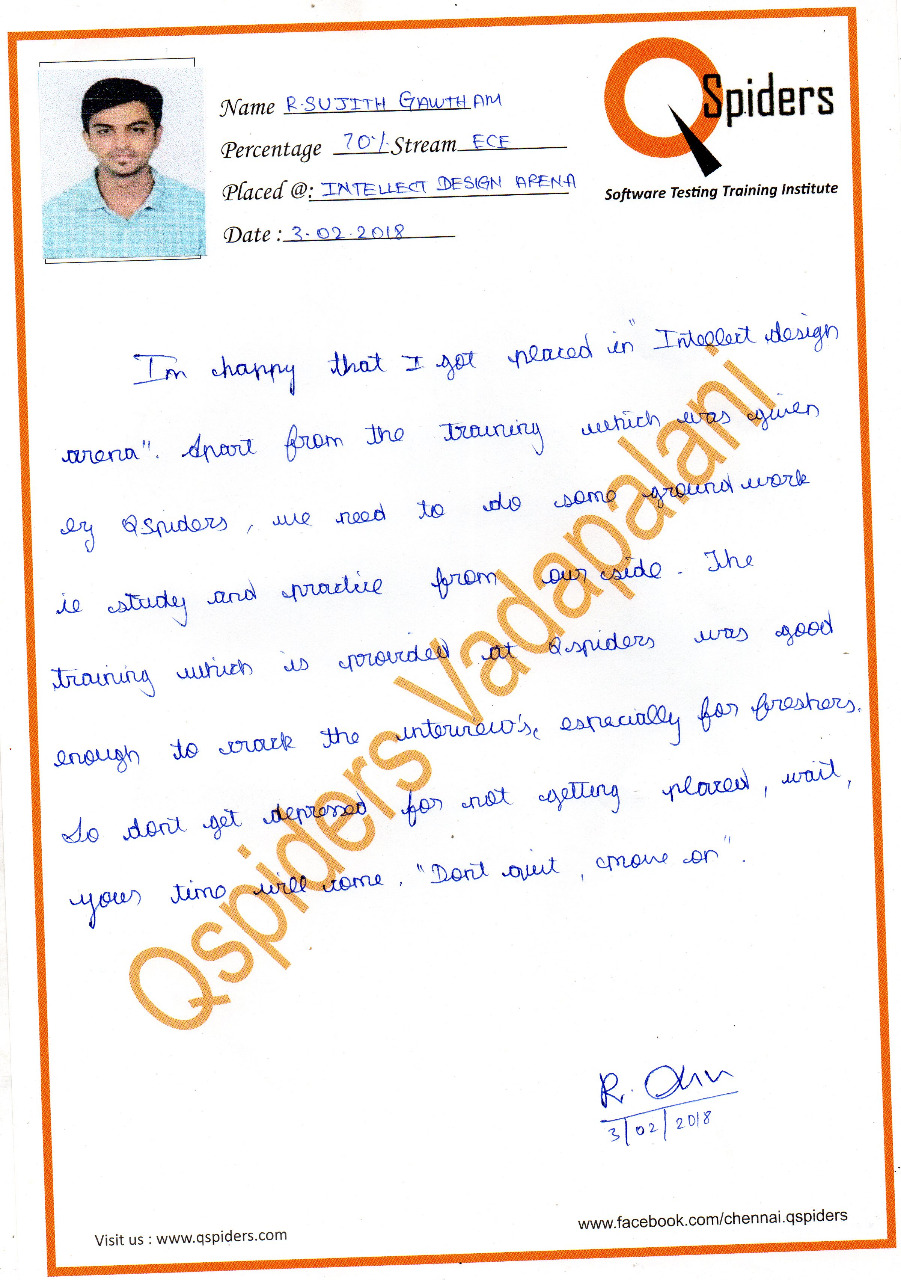 Name R.SUJITH GAWTHAM
Percentage 70% Stream ECE
Placed @: INTELLECT DESIGN ARENA
Date : 3.02.2018
QSpiders
Software Testing Training Institute
I'm happy that I got placed in "Intellect design
arena". Apart from the training which was given
by QSpiders, we need to do some ground work
ie study and practice from our side. The
training which is provided at Qspiders was good
enough to crack the interview's, especially for freshers.
So don't get depressed for not getting placed, wait,
your time will come. "Don't quit, move on".
Qspiders Vadapalani
R.
3/02/2018
Visit us : www.qspiders.com
www.facebook.com/chennai.qspiders